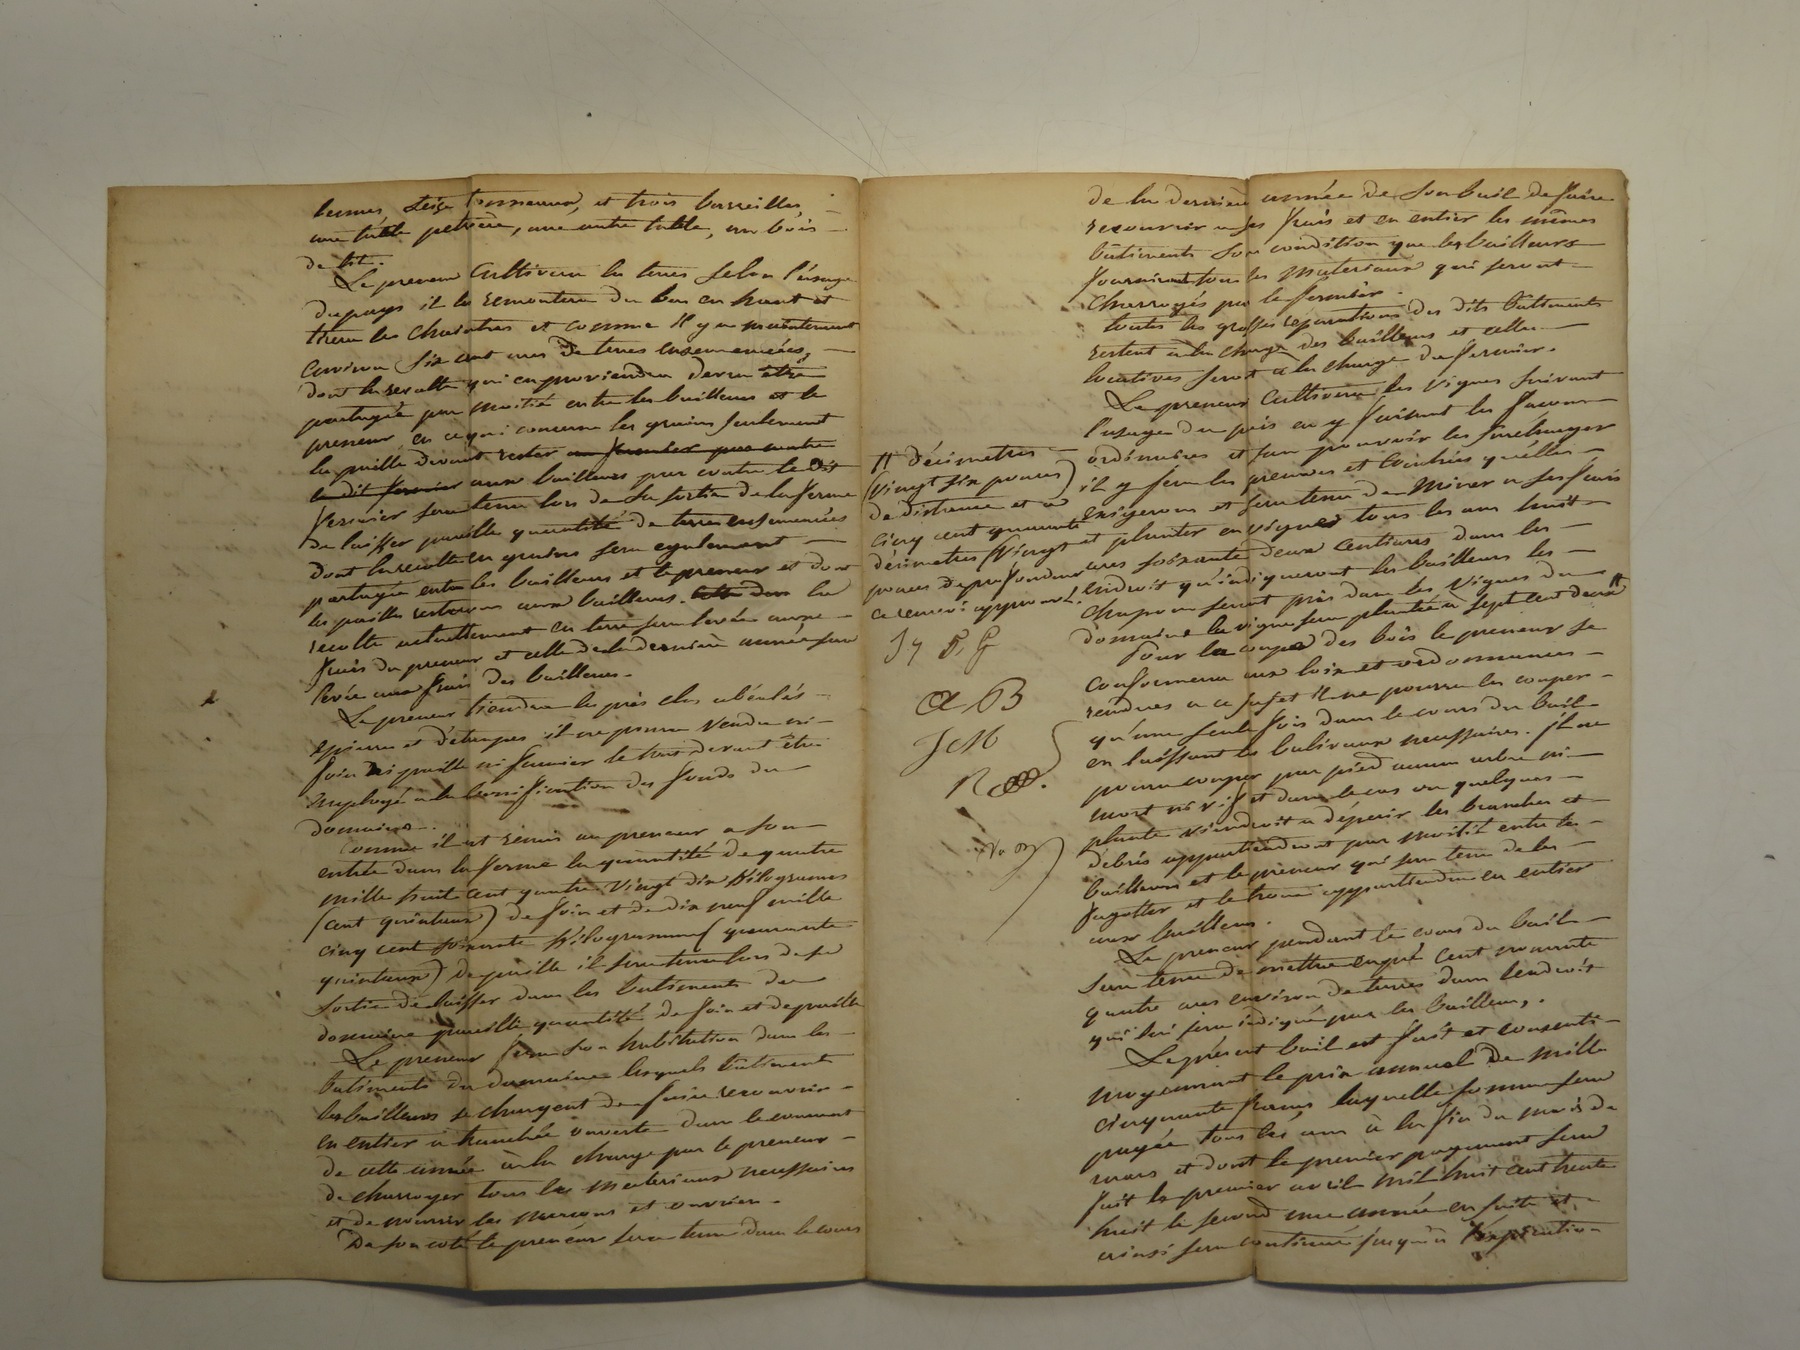 lames, seize tonneaux, et trois barreilles,
une table petrière, une autre table, un bois
de lit.
Le preneur Cultivera les terres selon l'usage
du pays il les remontera du bas en haut et
tirera les chaintres et comme il y a maintenant
environ six cent ares de terres ensemencées,
dont la recolte qui en proviendra devra être
partagée par moitié entre les bailleurs et le
preneur, en ce qui concerne les grains seulement
la paille devant rester au fermier par contre
le dit fermier aux bailleurs par contre le dit
fermier sera tenu lors de sa sortie de la ferme
de laisser pareille quantité de terres ensemencées
dont la recolte en grains sera egalement
partagée entre les bailleurs et le preneur et dont
les pailles resteront aux bailleurs. la
recolte actuellement en terre sera levée aux
frais du preneur et celle de la dernière année sera
levée aux frais des bailleurs.
Le preneur tiendra les près clos
epierrés et d'étaupés il ne pourra vendre ni
foin ni paille ni fumier le tout devant être
employé à la bonnification des fonds du
domaine.
Comme il est remis au preneur a son
entrée dans la ferme la quantité de quatre
mille huit cent quatre vingt dix kilogrames
(cent quintaux) de foin et de dix neuf mille
cinq cent soixante kilogrammes (quarante
quintaux) de paille il sera tenu lors de sa
sortie de laisser dans les batiments du
domaine pareille quantité de foin et de paille
Le preneur fera son habitation dans les
batiments du domaine lesquels bâtiments
les bailleurs se chargent de faire recouvrir
en entier à tranchée ouverte dans le courant
de cette année à la charge par le preneur
de charroyer tous les materiaux necessaires
et de nourrir les maçons et ouvriers.
De son coté le preneur sera tenu dans le cours
de la dernière année de son bail de faire
recouvrir a ses frais et en entier les mêmes
bâtiments sou condition que les bailleurs
fourniront tous les materiaux qui seront
charroyés par le fermier.
toutes les grosses reparations des dits bâtiments
restent à la charge des bailleurs et celles
locatives seront à la charge du fermier.
Le preneur cultivera les vignes suivant
l'usage du païs en y faisant les facons
ordinaires et sans pouvoir les surcharger
il y fera les preuves et qu'elles
exigeront et sera tenu de miner a ses frais
et planter en vignes tous les ans huit
ares soixante deux centiares dans les
endroit qu'indiqueront les bailleurs les
chapons seront pris dans les vignes du
domaine la vigne sera plantée à sept cent deux //
Pour la coupe des bois le preneur se
conformera aux loix et ordonnances
rendues a ce sujet il ne pourra les couper
qu'une seule fois dans le cours du bail
en laissant les baliveaux necessaires. Il ne
pourra couper par pied aucun arbre ni
mort ni vif et dans le cas ou quelques
plante viendroit a dépérir les branches et
debris appartiendront par moitié entre les
bailleurs et le preneur qui sera tenu de les
fagotter et le tronc appartiendra en entier
aux bailleurs.
Le preneur pendant le cours du bail
sera tenu de mettre en pré cent soixante
quatre ares environ de terres dans l'endroit
qui lui sera indiqué par les bailleurs.
Le présent bail est fait et consenti
moyennant le prix annuel de mille
cinquante francs laquelle somme sera
payée tous les ans à la fin du mois de
mars et dont le premier payement sera
fait le premier avril mil huit cent trente
huit le second une année en suite et
ainsi sera continué jusqu'à l'expiration
// décimetres
(vingt six pouces)
de distance et à
cinq cent quarante
décimetres (vingt
pouces de profondeur
ce renvoi approuvé.
J y F. G
A B
J C M
R